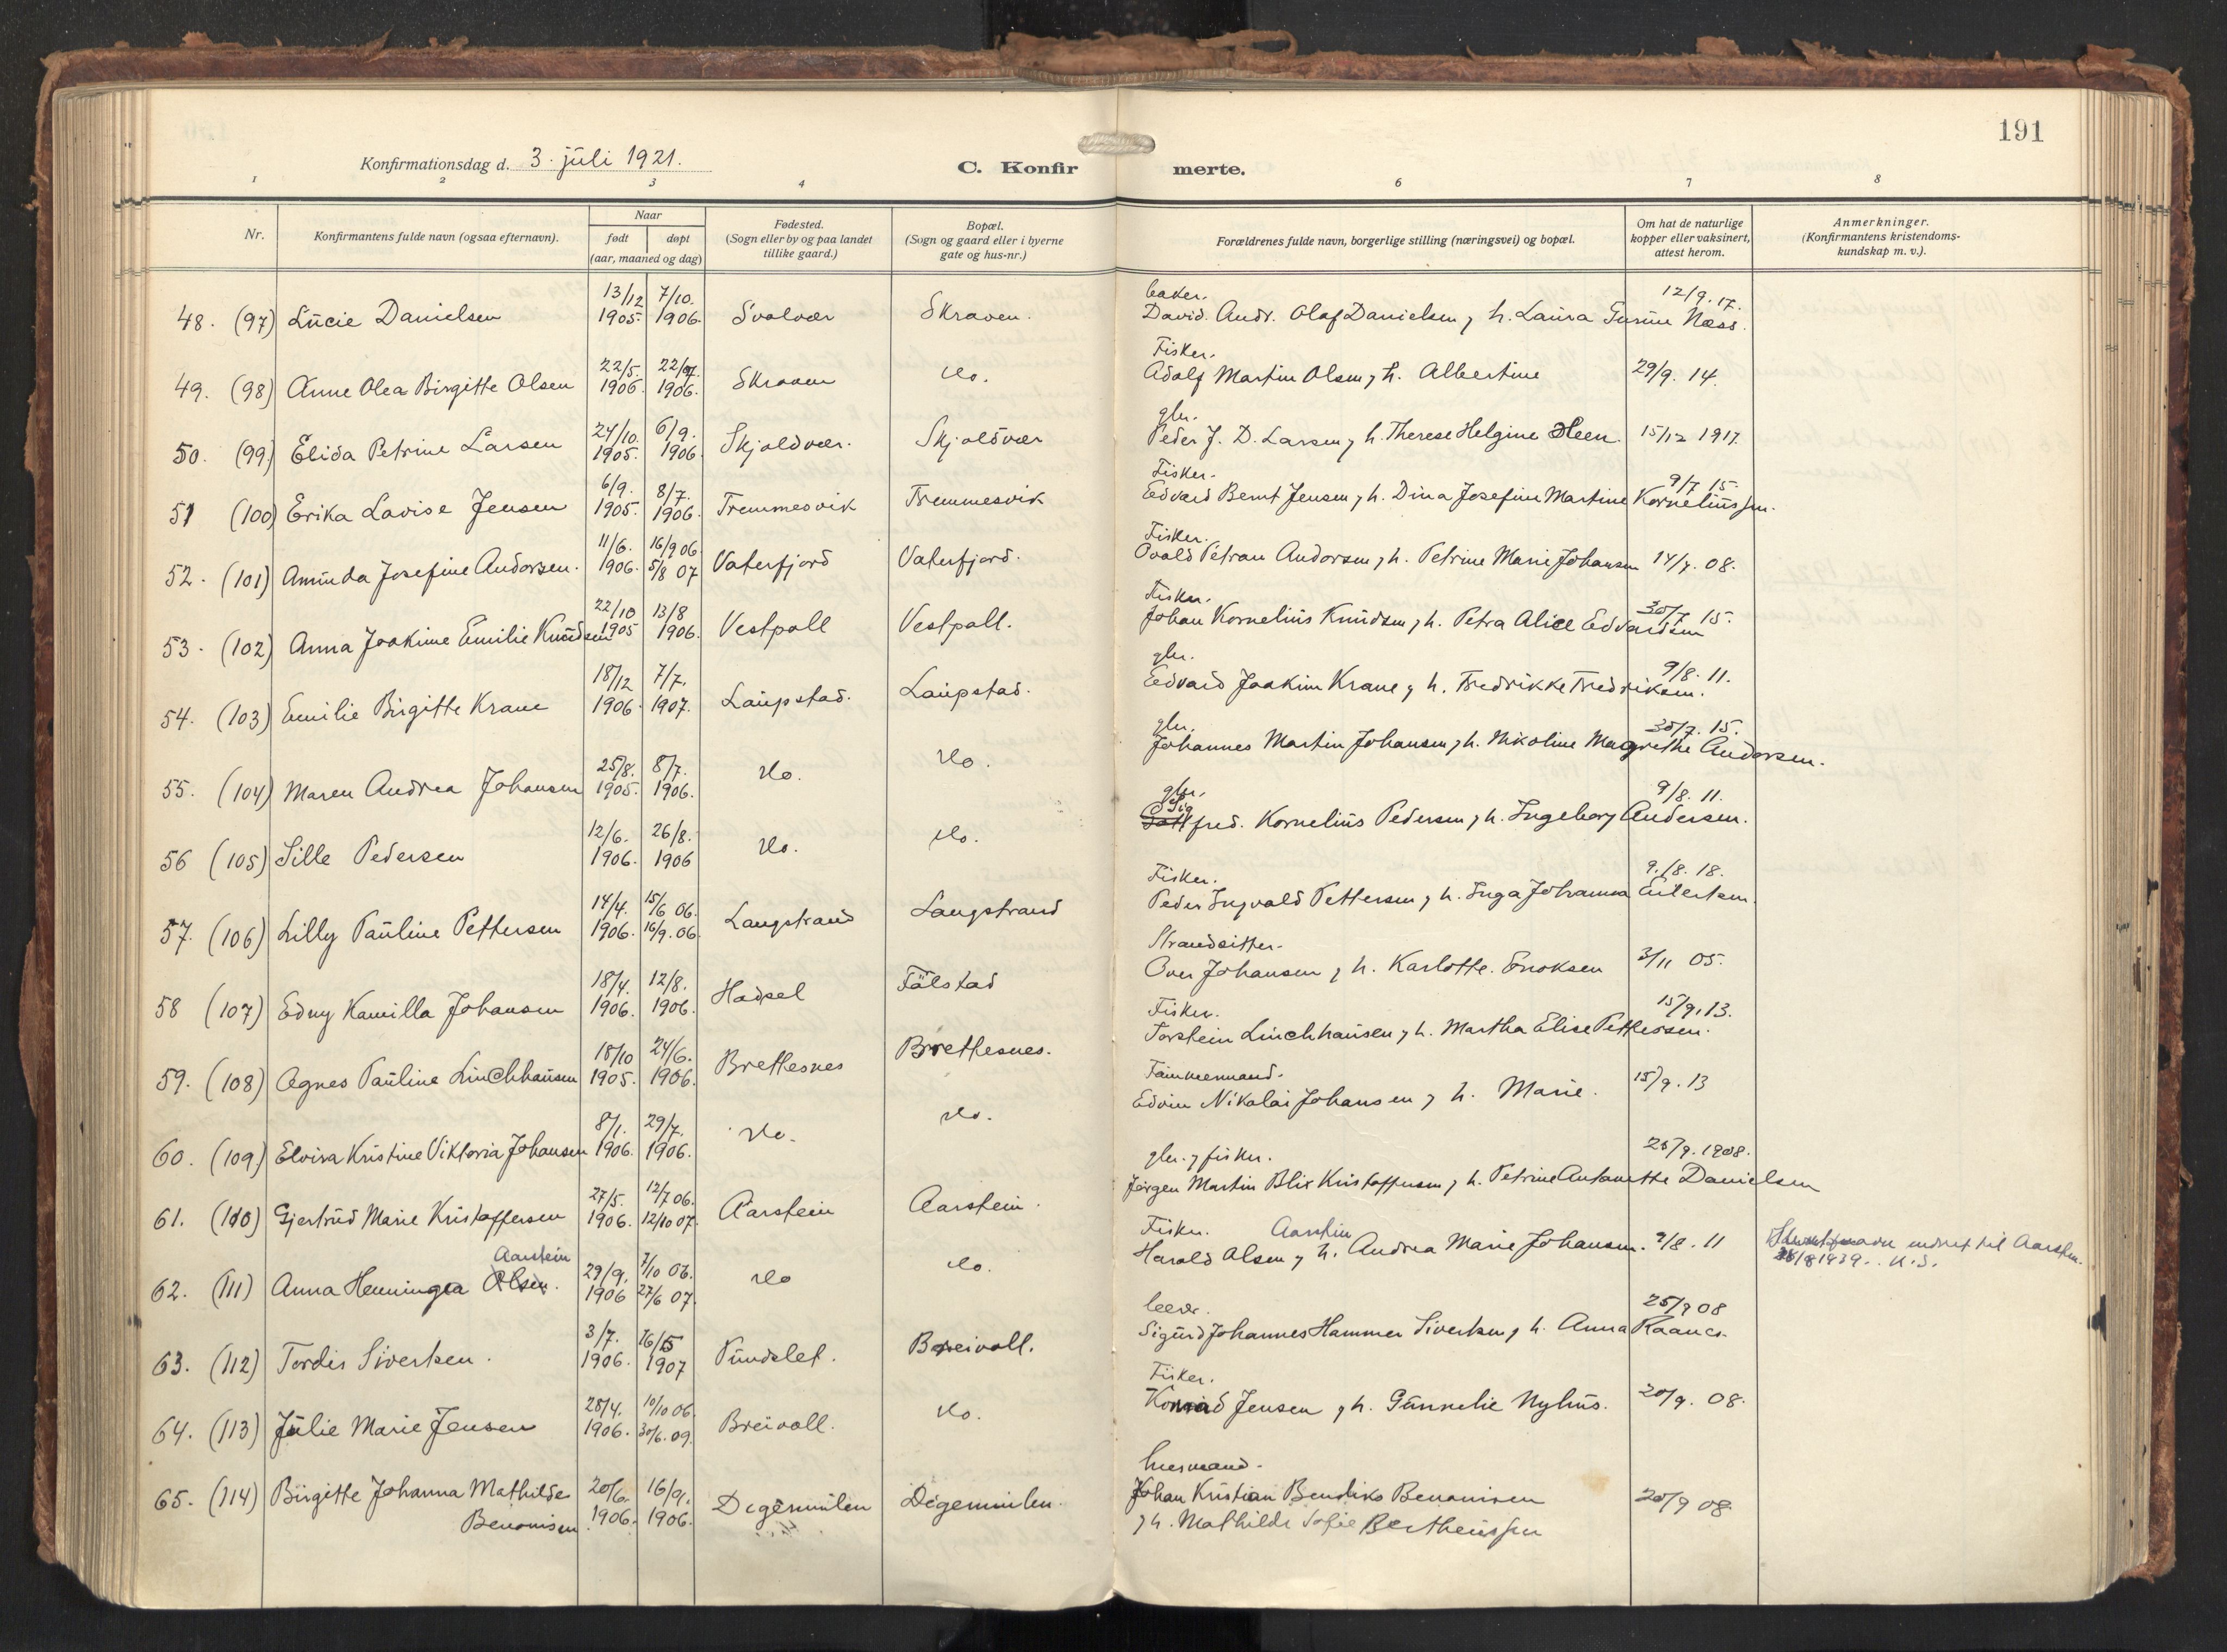 191
Konfirmationsdag d. 3. juli 1921.
C. Konfirmerte.
1 2 3 4 6 7 8
Nr.
Konfirmantens fulde navn (ogsaa efternavn).
Naar
født døpt
(aar, maaned og dag)
Fødested.
(Sogn eller by og paa landet
tillike gaard.)
Bopæl.
(Sogn og gaard eller i byerne
gate og hus-nr.)
Forældrenes fulde navn, borgerlige stilling (næringsvei) og bopæl.
Om hat de naturlige
kopper eller vaksinert,
attest herom.
Anmerkninger.
(Konfirmantens kristendoms-
kundskap m. v.).
13/12 7/10. baker. 12/9. 17.
48. (97) Lucie Danielsen 1905. 1906. Svolvær Skraaven. David. Andr. Olaf Danielsen, h. Laura Gurine Næss.
22/5. 22/7. Fisker.
49. (98) Anne Olea Birgitte Olsen 1906. 1906. Skraaven do. Adolf Martin Olsen, h. Albertine 29/9. 14.
24/10. 6/9. gbr.
50. (99) Elida Petrine Larsen 1905. 1906 Skjoldvær. Skjoldvær Peder J. D. Larsen, h. Therese Helgine Heen. 15/12 1917.
6/9. 8/7. Fisker. 9/7 15.
51 (100) Erika Lovise Jensen 1905. 1906. Tremmesvik Tremmesvik Edvard Bernt Jensen, h. Dina Josefine Martine Korneliussen.
11/6. 16/9 06 Fisker.
52. (101) Aminda Josefine Andorsen. 1906. 5/8 07 Vaterfjord Vaterfjord. Ovald Petran Andorsen, h. Petrine Marie Johansen 14/7. 08.
22/10 13/8 Fisker. 30/7 15.
53. (102) Anna Joakime Emilie Knudsen 1905 1906. Vestpoll Vestpoll. Johan Kornelius Knudsen, h. Petra Alice Edvardsen
18/12 7/7. gbr. 9/8. 11.
54. (103) Emilie Birgitte Krane 1906. 1907. Laupstad. Laupstad. Edvard Joakim Krane, h. Fredrikke Fredriksen.
25/8. 8/7. gbr. 30/7. 15.
55. (104) Maren Andrea Johansen 1905. 1906. do. do. Johannes Martin Johansen, h. Nikoline Magrethe Andersen.
12/6. 26/8. gbr. 9/8. 11.
Sig
56 (105) Sille Pedersen 1906. 1906 do. do. fred. Kornelius Pedersen, h. Ingeborg Andersen.
14/4. 15/6 06. Fisker. 9./8. 18.
57. (106) Lilly Pauline Pettersen 1906. 16/9. 06. Langstrand Langstrand Peder Ingvald Pettersen, h. Inga Johanna Eilertsen.
18/4. 12/8. Strandsitter.
58 (107) Edny Kamilla Johansen 1906. 1906. Hadsel Falstad Over Johansen, h. Karlotte. Enoksen 3/11 05.
18/10 24/6. Fisker. 15/9. 13.
59. (108) Agnes Pauline Linchhausen 1905. 1906. Brettesnes Brettesnes. Torstein Linchhausen, h. Martha Elise Pettersen.
8/1. 29/7. Tømmermand.
60. (109) Elvira Kristine Viktoria Johansen 1906. 1906. do. do. Edvin Nikolai Johansen, h. Marie. 15/9. 13
27/5. 12/7 06. gbr. fisker. 25/9. 1908.
61. (110) Gjertrud Marie Kristoffersen 1906. 12/10 07. Aarstein Aarstein. Jørgen Martin Blix Kristoffersen, h. Petrine Antonette Danielsen
Aarstein 29/9. 7/10 06. Fisker. Aarstein
62. (111) Anna Henningea Olsen. 1906 27/6 07. do do. Harald Olsen, h. Andrea Marie Johansen. 9/8. 11 endret til Aarstein.
8/8 1939. K.S.
3/7. 16/5 25/9 08
63. (112) Tordis Sivertsen. 1906. 1907 Pundslet. Breivoll. Sigurd Johannes Hammer Sivertsen, h. Anna Raanes.
28/4. 10/10 06. Fisker.
64. (113) Julie Marie Jensen 1906. 30/6. 09. Breivoll. do. Konrad Jensen, h. Gunnelie Nyhus. 20/9. 08.
20/6. 16/9. husmand.
65. (114) Birgitte Johanna Mathilde 1906. 1906. Digermulen Digermulen. Johan Kristian Bendiks Benonisen 20/9 08
Benonisen , h. Mathilde Sofie Bertheussen